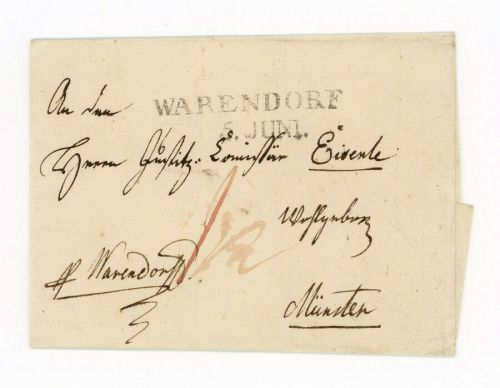 WARENDORF
5. JUNI.
An den
Herrn Justitz-Comissär Eisenle
Wohlgebor
Warendorff
Münster